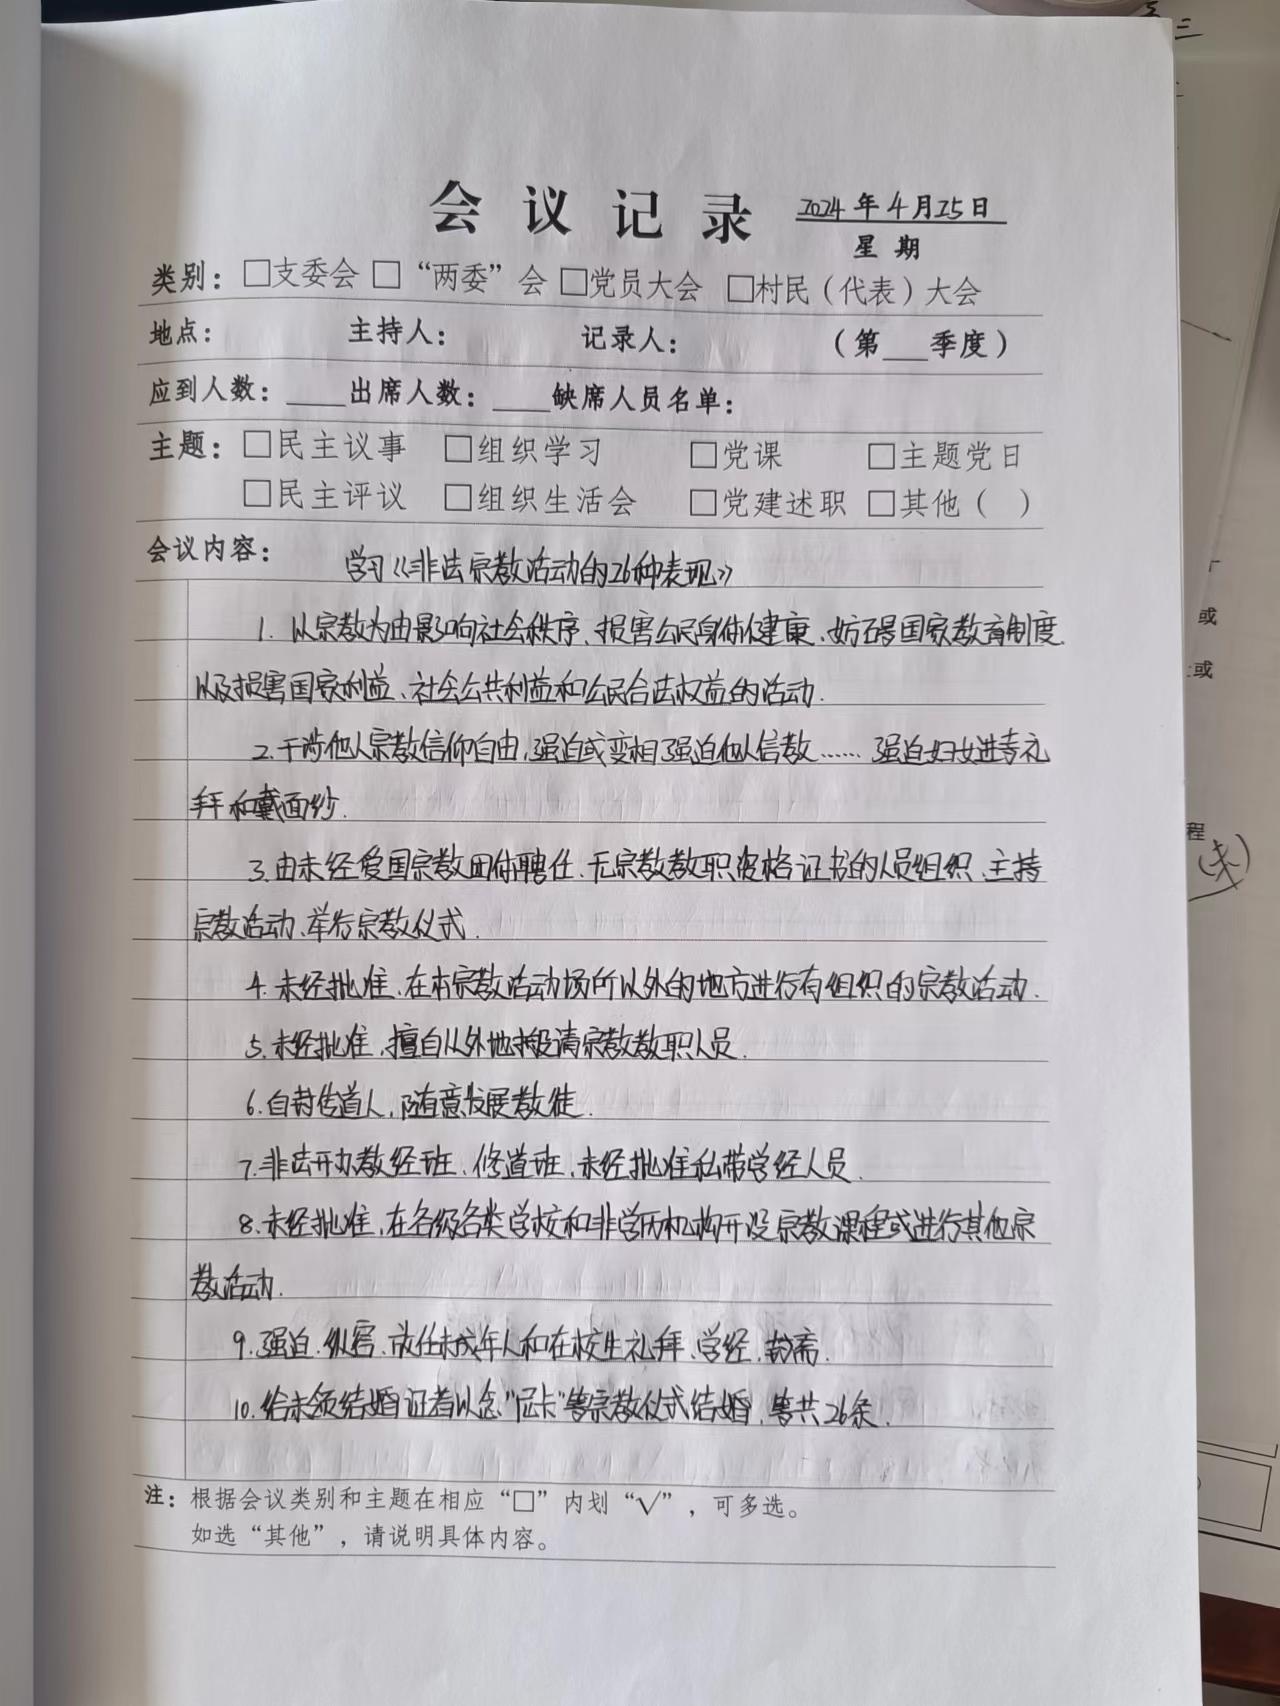 会议记录 2024年4月25日
星期
类别：□支委会 □“两委”会 □党员大会 □村民（代表）大会
地点： 主持人： 记录人： （第___季度）
应到人数：____出席人数：____缺席人员名单：
主题：□民主议事 □组织学习 □党课 □主题党日
□民主评议 □组织生活会 □党建述职 □其他（ ）
会议内容： 学习《非法宗教活动的26种表现》
1. 以宗教为由影响社会秩序、损害公民身体健康、妨碍国家教育制度
以及损害国家利益、社会公共利益和公民合法权益的活动.
2.干涉他人宗教信仰自由,强迫或变相强迫他人信教……强迫妇女进寺礼
拜和戴面纱.
3.由未经爱国宗教团体聘任、无宗教教职资格证书的人员组织、主持
宗教活动、举行宗教仪式.
4.未经批准、在本宗教活动场所以外的地方进行有组织的宗教活动.
5.未经批准,擅自从外地接请宗教教职人员.
6.自封传道人,随意发展教徒.
7.非法开办教经班、修道班,未经批准私带学经人员.
8.未经批准,在各级各类学校和非学历机构开设宗教课程或进行其他宗
教活动.
9.强迫、纵容、放任未成年人和在校生礼拜、学经、封斋.
10.给未领结婚证者以念“尼卡”等宗教仪式结婚,等共26条.
注：根据会议类别和主题在相应“□”内划“√”，可多选。
如选“其他”，请说明具体内容。
或
或
程
(未)
三